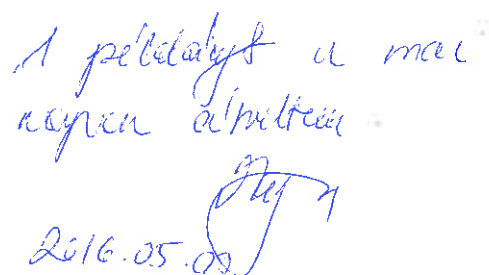 1 példányt a mai
napon átvettem
2016.05.09